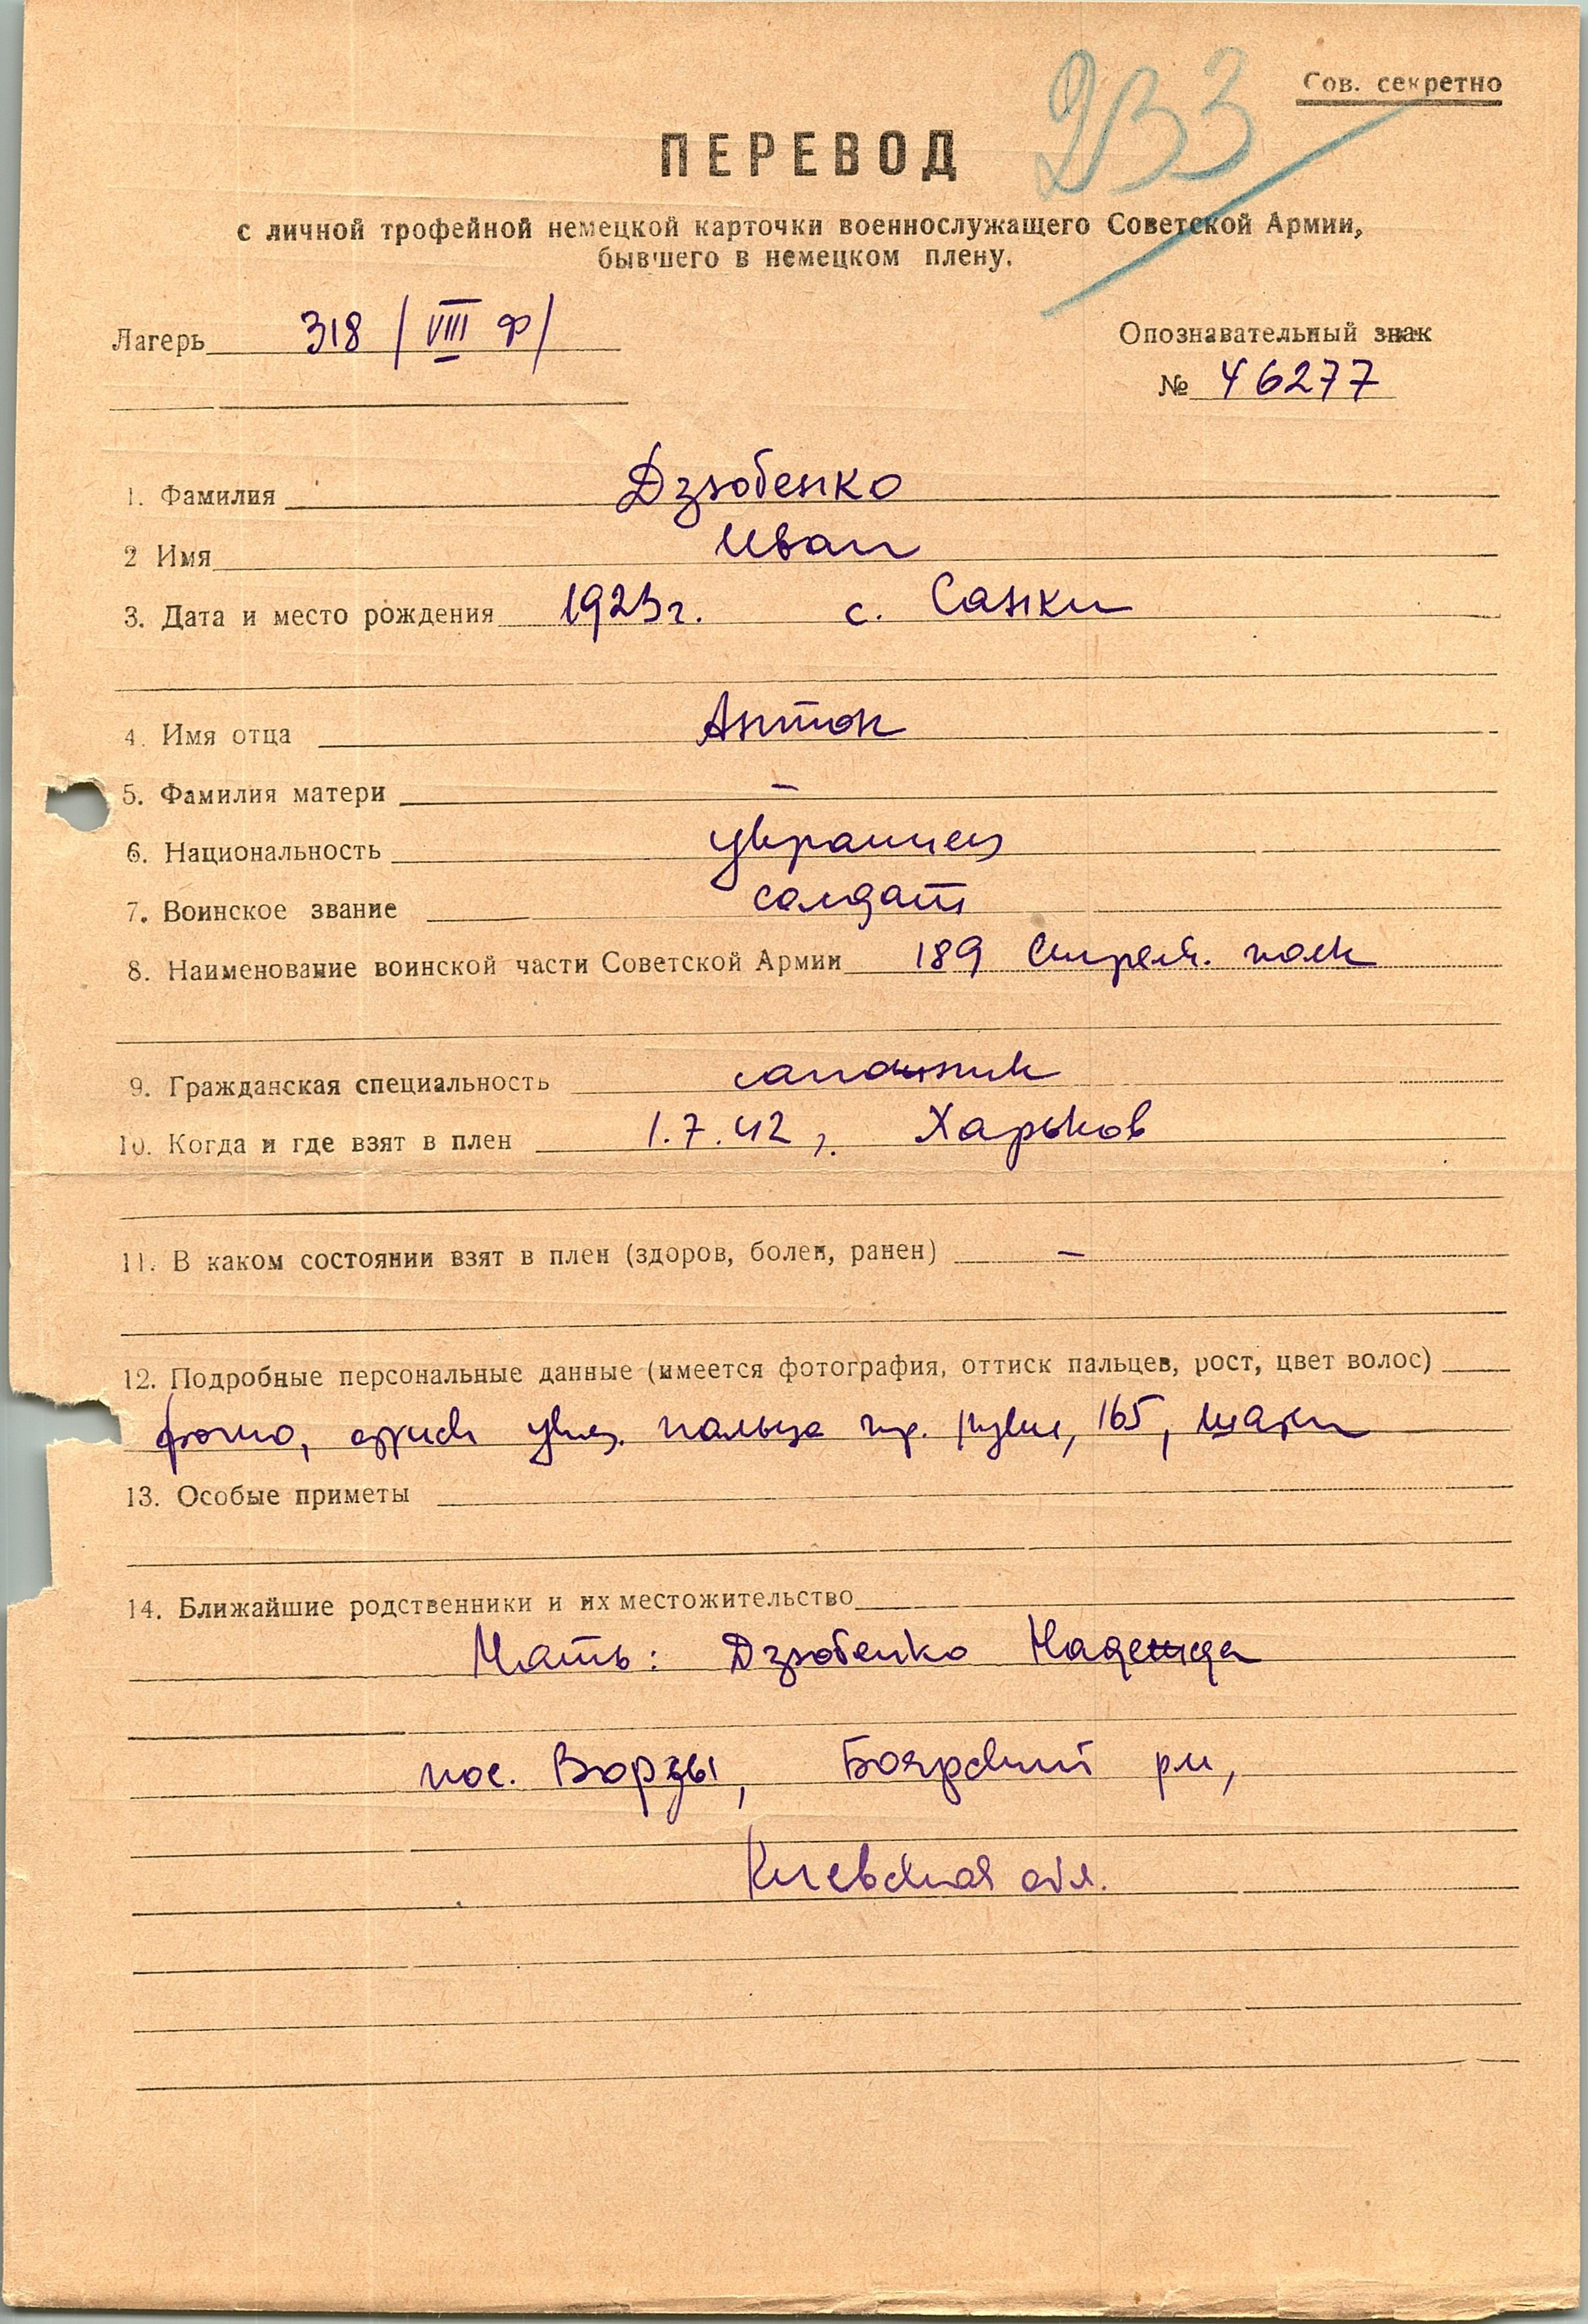 Сов. секретно
ДВЗ
ПЕРЕВОД
с личной трофейной немецкой карточки военнослужащего Советской Армии,
бывшего в немецком плену.
Лагерь 318 / VIII Ф/
Опознавательный знак
№ 46277
1. Фамилия Дзюбенко
2 Имя Иван
3. Дата и место рождения 1923г. с. Санки
4. Имя отца Антон
5. Фамилия матери –
6. Национальность украинец
7. Воинское звание солдат
8. Наименование воинской части Советской Армии 189 Стрелк. полк
9. Гражданская специальность сапожник
10. Когда и где взят в плен 1.7.42, Харьков
11. В каком состоянии взят в плен (здоров, болен, ранен) –
12. Подробные персональные данные (имеется фотография, оттиск пальцев, рост, цвет волос)
фото, указ. пальца пр. руки, 165,
13. Особые приметы
14. Ближайшие родственники и их местожительство
Мать: Дзюбенко Надежда
пос. Ворзы, Боярский рн,
Киевская обл.